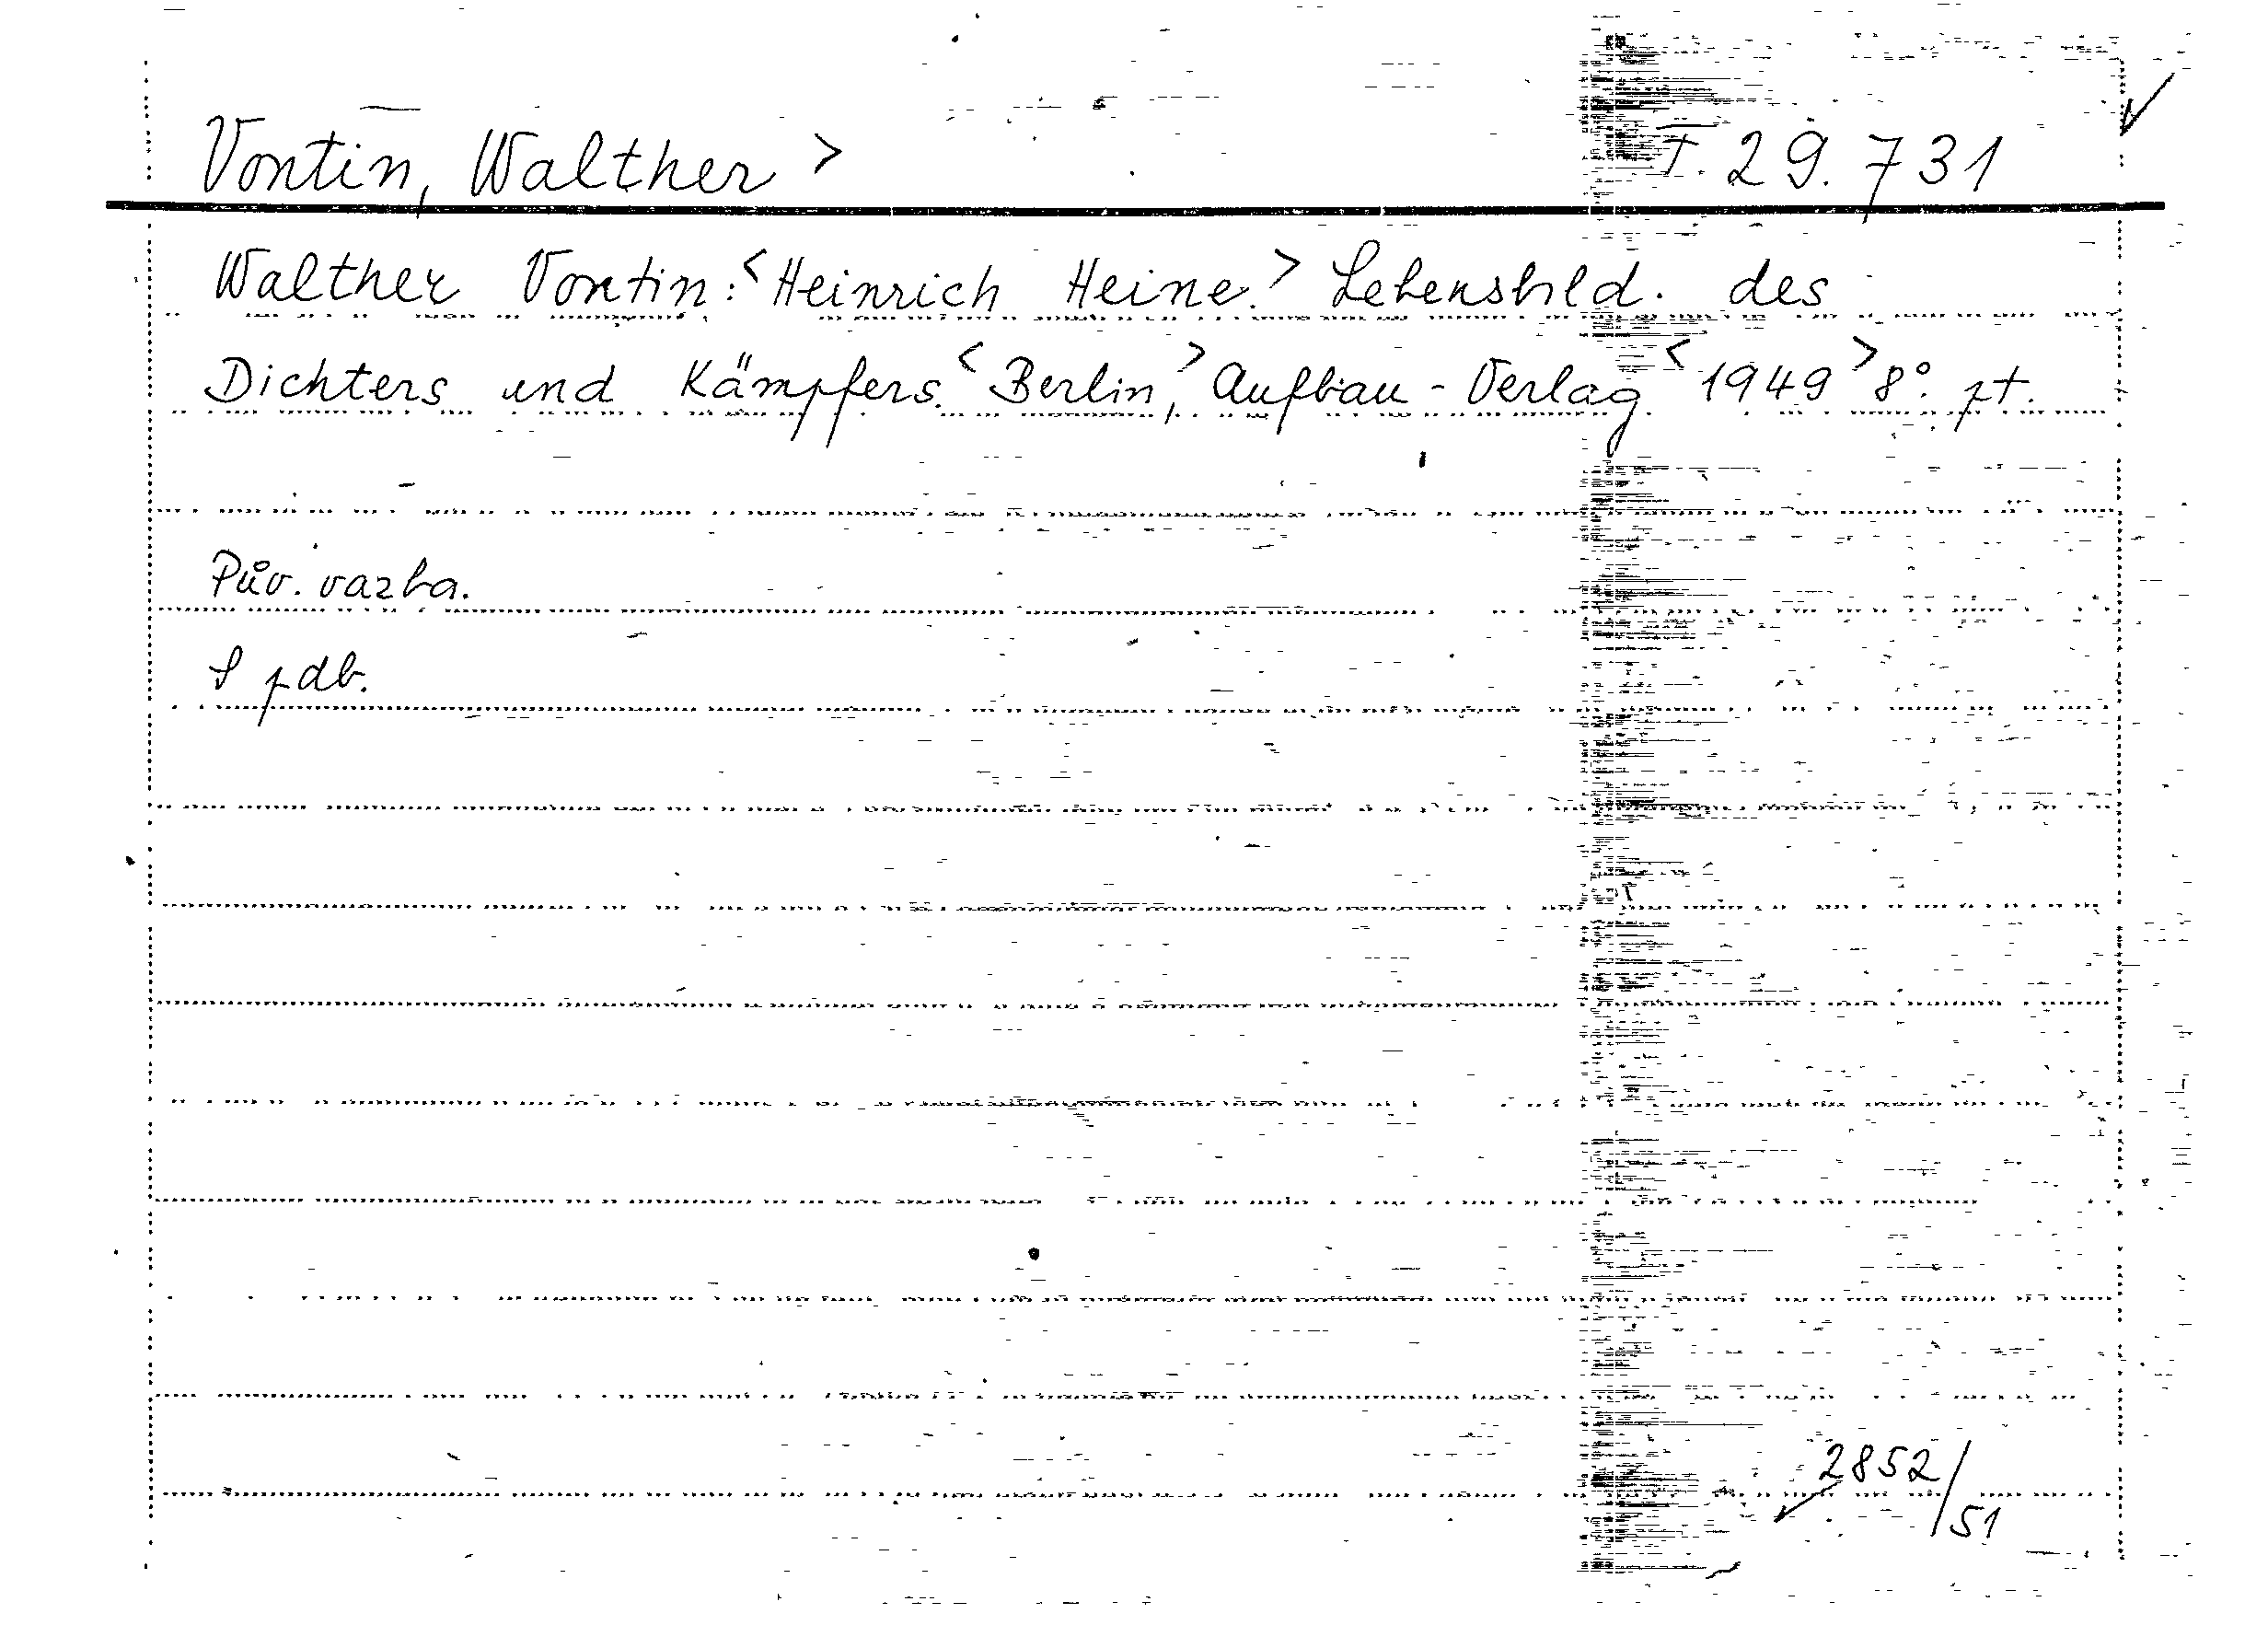 Vontin, Walther > T. 29.731
Walther Vontin: <Heinrich Heine.> Lebensbild. des
Dichters und Kämpfers. <Berlin,> Aufbau-Verlag <1949> 8°. pt.
Pův. vazba.
S pdb.
2852/51